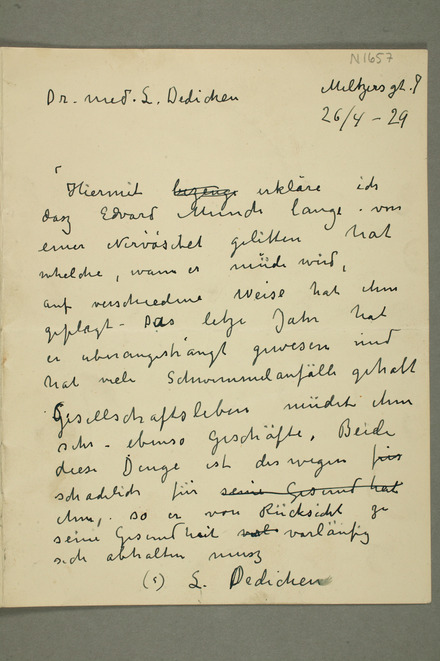 N1657
Dr. med. L. Dedichen
Meltzers gt. 9
26/4 - 29
"Hiermit bezeuge erkläre ich
dasz Edvard Munch lange - von
einer Nervösität gelitten hat
whelche, wann er müde wird,
auf verschiedene Weise hat ihm
geplagt - Das letze Jahr hat
er uberangesträngt gewesen und
hat viele Schwimmelanfälle gehalt
Gesellschaftsleben müdet ihm
sehr - ebenso Geschäfte. Beide
diese Dinge ist deswegen für
schadlich für seine Gesundhat
ihm, so er von Rücksicht zu
seine Gesundheit vorläufig
sich abhalten musz
(s) L. Dedichen